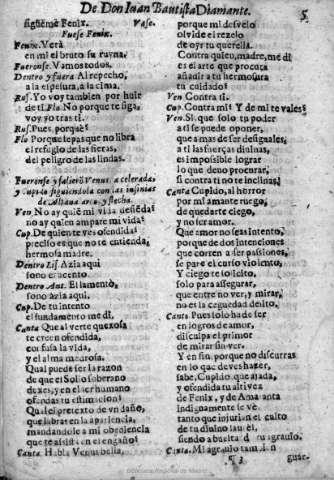 De Don Iuan Bautista Diamante.
5
sigueme Fenix. Vase.
Fuese Fenix.
Fenix. Verà
en mi el bruto su ruyna.
Fueronse. Vamos todos.
Dentro y fuera Al repecho,
a la espesura, a la cima.
Rus. Yo voy tambien por huir
de ti. Flo. No porque te siga,
voy yo tras ti.
Rus. Pues, porquè?
Flo Porque sepas que no libra
el refugio de las fieras,
del peligro de las lindas.
Fuerouse y salio Venus acelerada,
y Cupido siguiendola con las insignias
de Aljaua arco y flecha.
Ven No ay quiẽ mi vida defiẽda?
no ay quien ampare mi vida?
Cup. De quien te ves ofendida
preciso es que no te entienda,
hermosa madre.
Dentro Lis Azia aqui
sonò el acento.
Dentro Ant. El lamento,
sonò azia aqui.
Cup. De tu intento
el fundamento me di.
Canta Que al verte quexosa
te creen ofendida,
confusa la vida,
y el alma medrosa.
Qual puede ser la razon
de que el Sol soberano
dexes, y en el ser humano
ofendas tu estimacion?
Qual el pretexto de vn daño,
que labras en la apariencia,
mandandole a mi obediencia
que te assista en el engaño?
Canta. Habla Venus bella,
porque mi desvelo
olvide el rezelo
de oyr tu querella.
Contra quien, madre, me di
es el arte que procura
añadir a tu hermosura
tu cuidado?
Ven Contra ti.
Cup. Contra mi? Y de mi te vales?
Ven. Si, que solo tu poder
a ti se puede oponer,
que a mas de ser desiguales,
a ti las fuerças diuinas,
es impossible lograr
lo que deuo procurar,
si contra ti no te inclinas.
Canta Cupido, al horror
por mi amante ruego,
de quedarte ciego,
y no ser amor.
Que amor no seas intento,
porque de dos intenciones
que corren a ser passiones,
se pare el curso violento,
Y ciego te solicito,
solo para assegurar,
que entre no ver, y mirar,
no es la ceguedad delito.
Canta. Pues solo ha de ser
en logros de amor,
disculpa el primor
de mirar sin ver.
Y en fin, porque no discurras
en lo que deues hazer,
sabe, Cupido, que ajada,
y ofendida tu altiuez
de Fenix, y de Amaranta
indignamente se vè,
tanto que injurian el culto
de tu diuino laurel,
siendo a buelta d tu agrauio.
Canta. Mi agrauio tambien
guar-